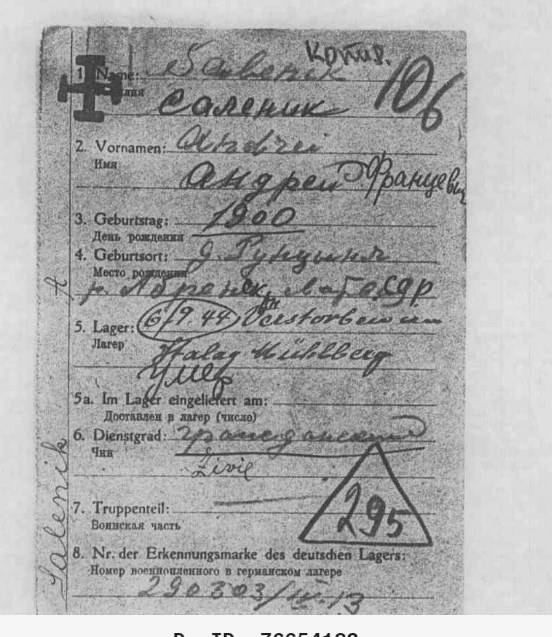 копия.
106
1. Name: Salenik
Фамилия
Саленик
2. Vornamen: Andrei
Имя
Андрей Францевич
3. Geburtstag: 1900
День рождения
4. Geburtsort: д.
Место рождения
р.
5. Lager: 6/9.44 Verstorben im
Лагер
Stalag Mühlberg
умер
5a. Im Lager eingeliefert am:
Доставлен в лагер (число)
6. Dienstgrad: гражданский
Чин
Zivil
7. Truppenteil:
Воинская часть
295
8. Nr. der Erkennungsmarke des deutschen Lagers:
Номер военнопленного в германском лагере
290303/IV. B
Salenik